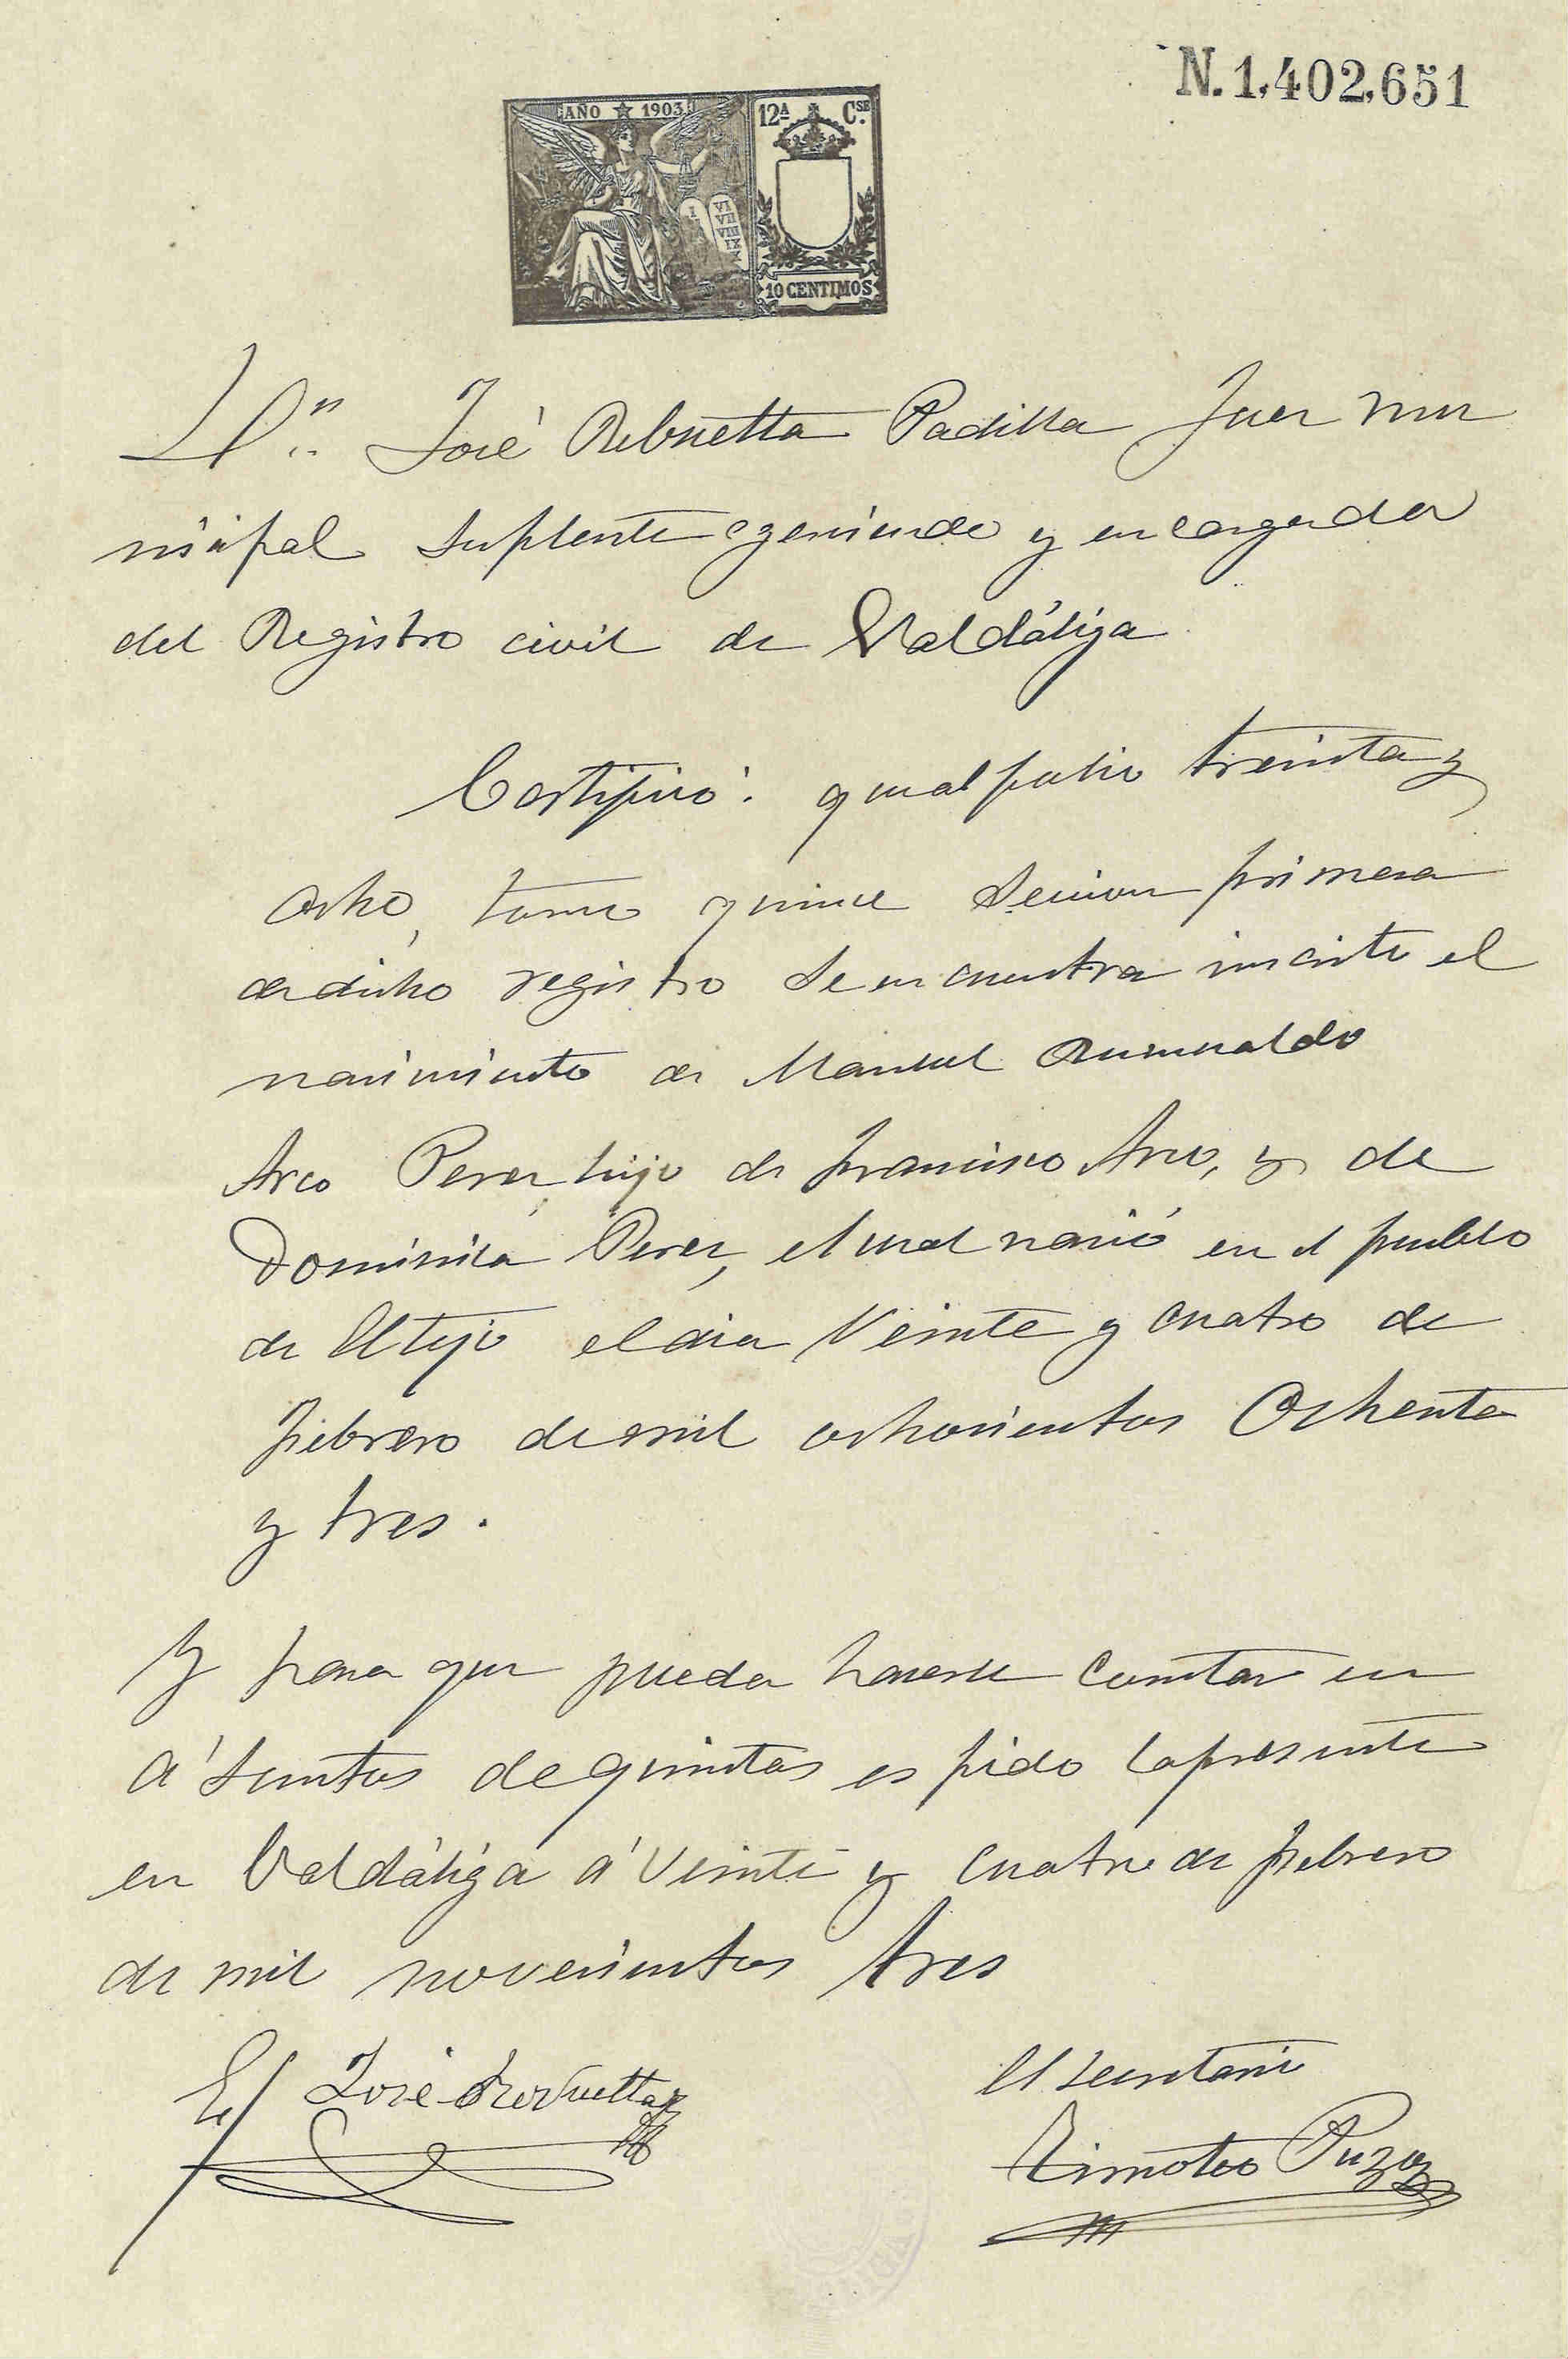 N. 1,402,651
AÑO 1903
12ª Cse.
10 CENTIMOS
Dn. José Rebuelta Padilla Juez mu
nicipal Suplente egerciendo y encargado
del Registro civil de Valdáliga
Certifico: que al folio treinta y
ocho, tomo quince Seccion primera
de dicho registro Se encuentra inscrito el
nacimiento de Manuel Rumualdo
Arco Perez, hijo de Francisco Arco, y de
Dominica Perez, el cual nació en el pueblo
de El tejo el dia Veinte y cuatro de
Febrero de mil ochocientos Ochenta
y tres.
Y para que pueda hacerse constar en
á Suntos de quintas es pido la presente
en Valdáliga á Veinte y cuatro de febrero
de mil novecientos tres
José Revuelta
El Secretario
Timoteo